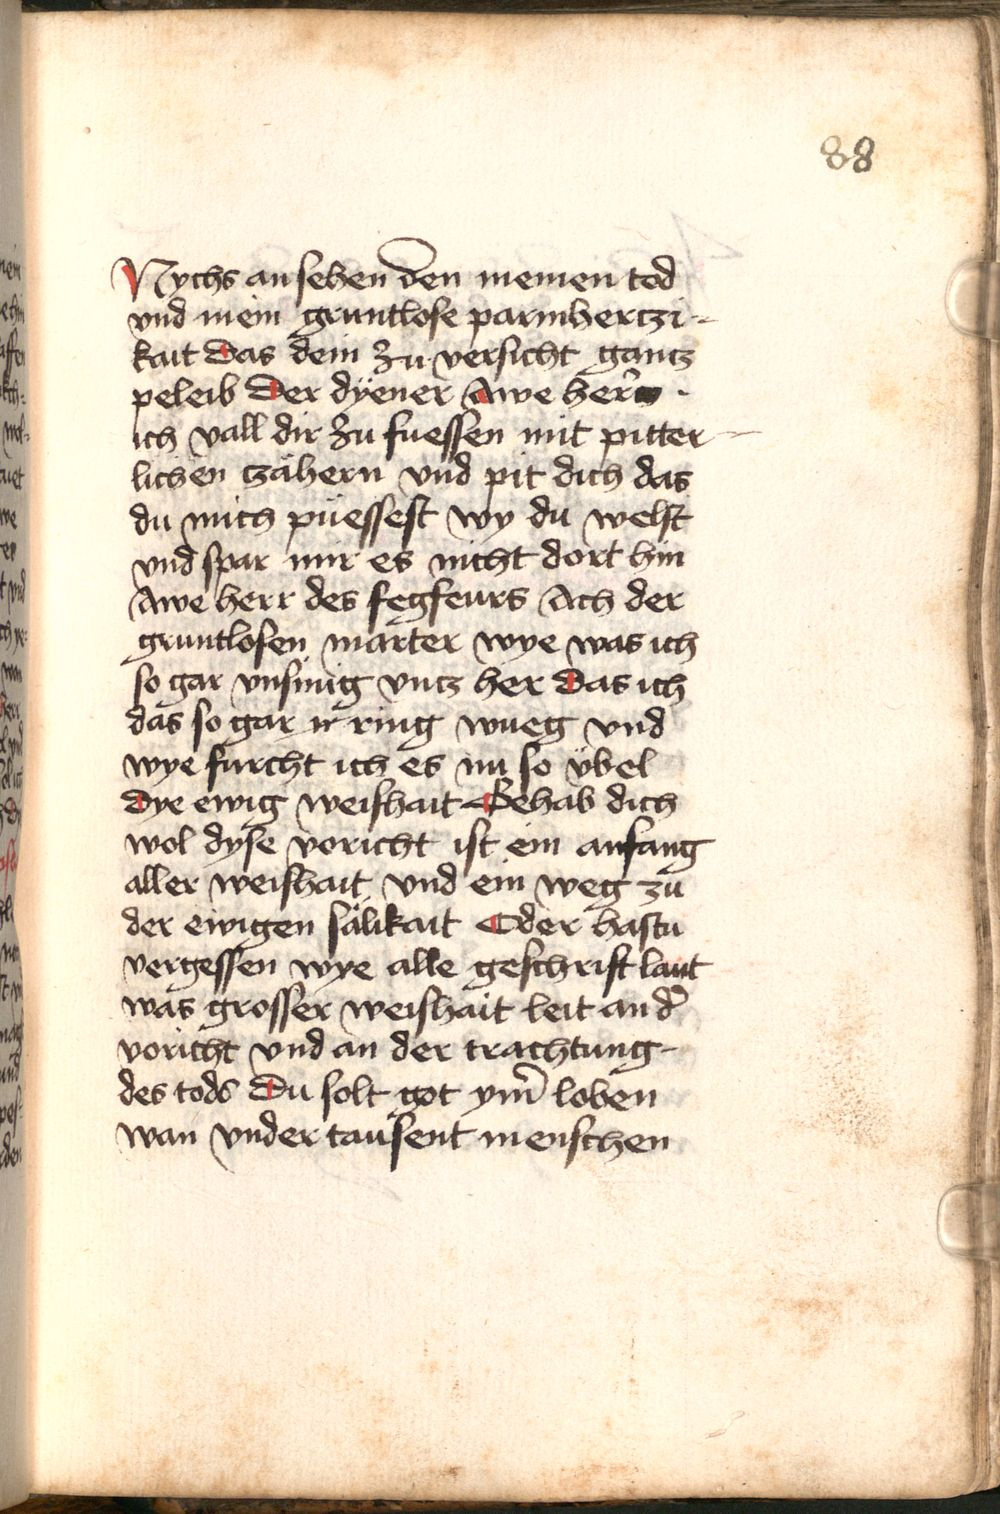 88
Nychs an sehen den meinen tod
vnd mein gruntlose parmhertzi-
kait Das dein zu versicht gantz
peleib Der dyëner Awe herr
ich vall dir zu fuessen mit pitter
lichen tzähern vnd pit dich das
du mich püessest wy du welst
vnd spar mir es nicht dort hin
Awe herr des fegfeurs Ach der
gruntlosen marter wye was ich
so gar vnsinig vntz her Das ich
das so gar ring wueg vnd
wye furcht ich es nu so vbel
Dye ewig weishait Gehab dich
wol dyse voricht ist ein anfang
aller weishait vnd ein weg zu
der ewigen sälikait Oder hastu
vergessen wye alle geschrift laut
was grosser weishait leit an d̄
voricht vnd an der trachtung-
des tods Du solt got ym̄ loben
wan vnder tausent menschen